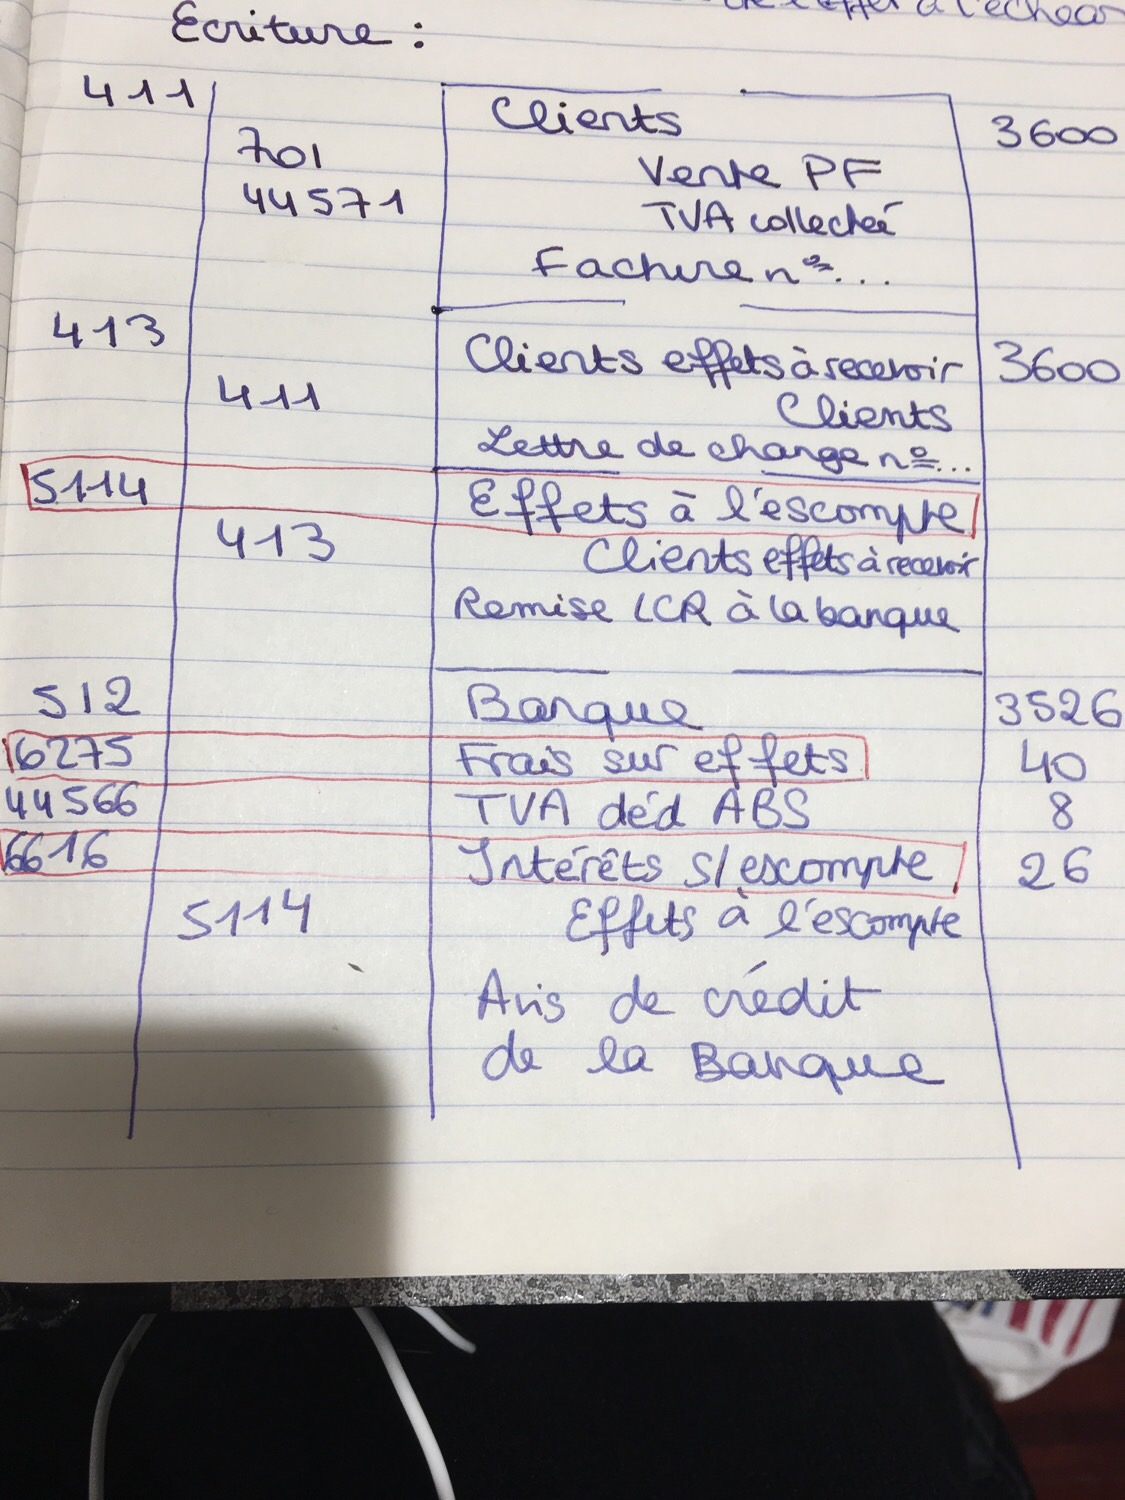 Ecriture :
411 Clients 3600
701 Vente PF
44571 TVA collecteé
Facture nº...
413 Clients effets à recevoir 3600
411 Clients
Lettre de change nº...
5114 Effets à l'escompte
413 Clients effets à recevoir
Remise LCR à la banque
512 Banque 3526
6275 Frais sur effets 40
44566 TVA déd ABS 8
6616 Intérêts s/escompte 26
5114 Effets à l'escompte
Avis de crédit
de la Banque